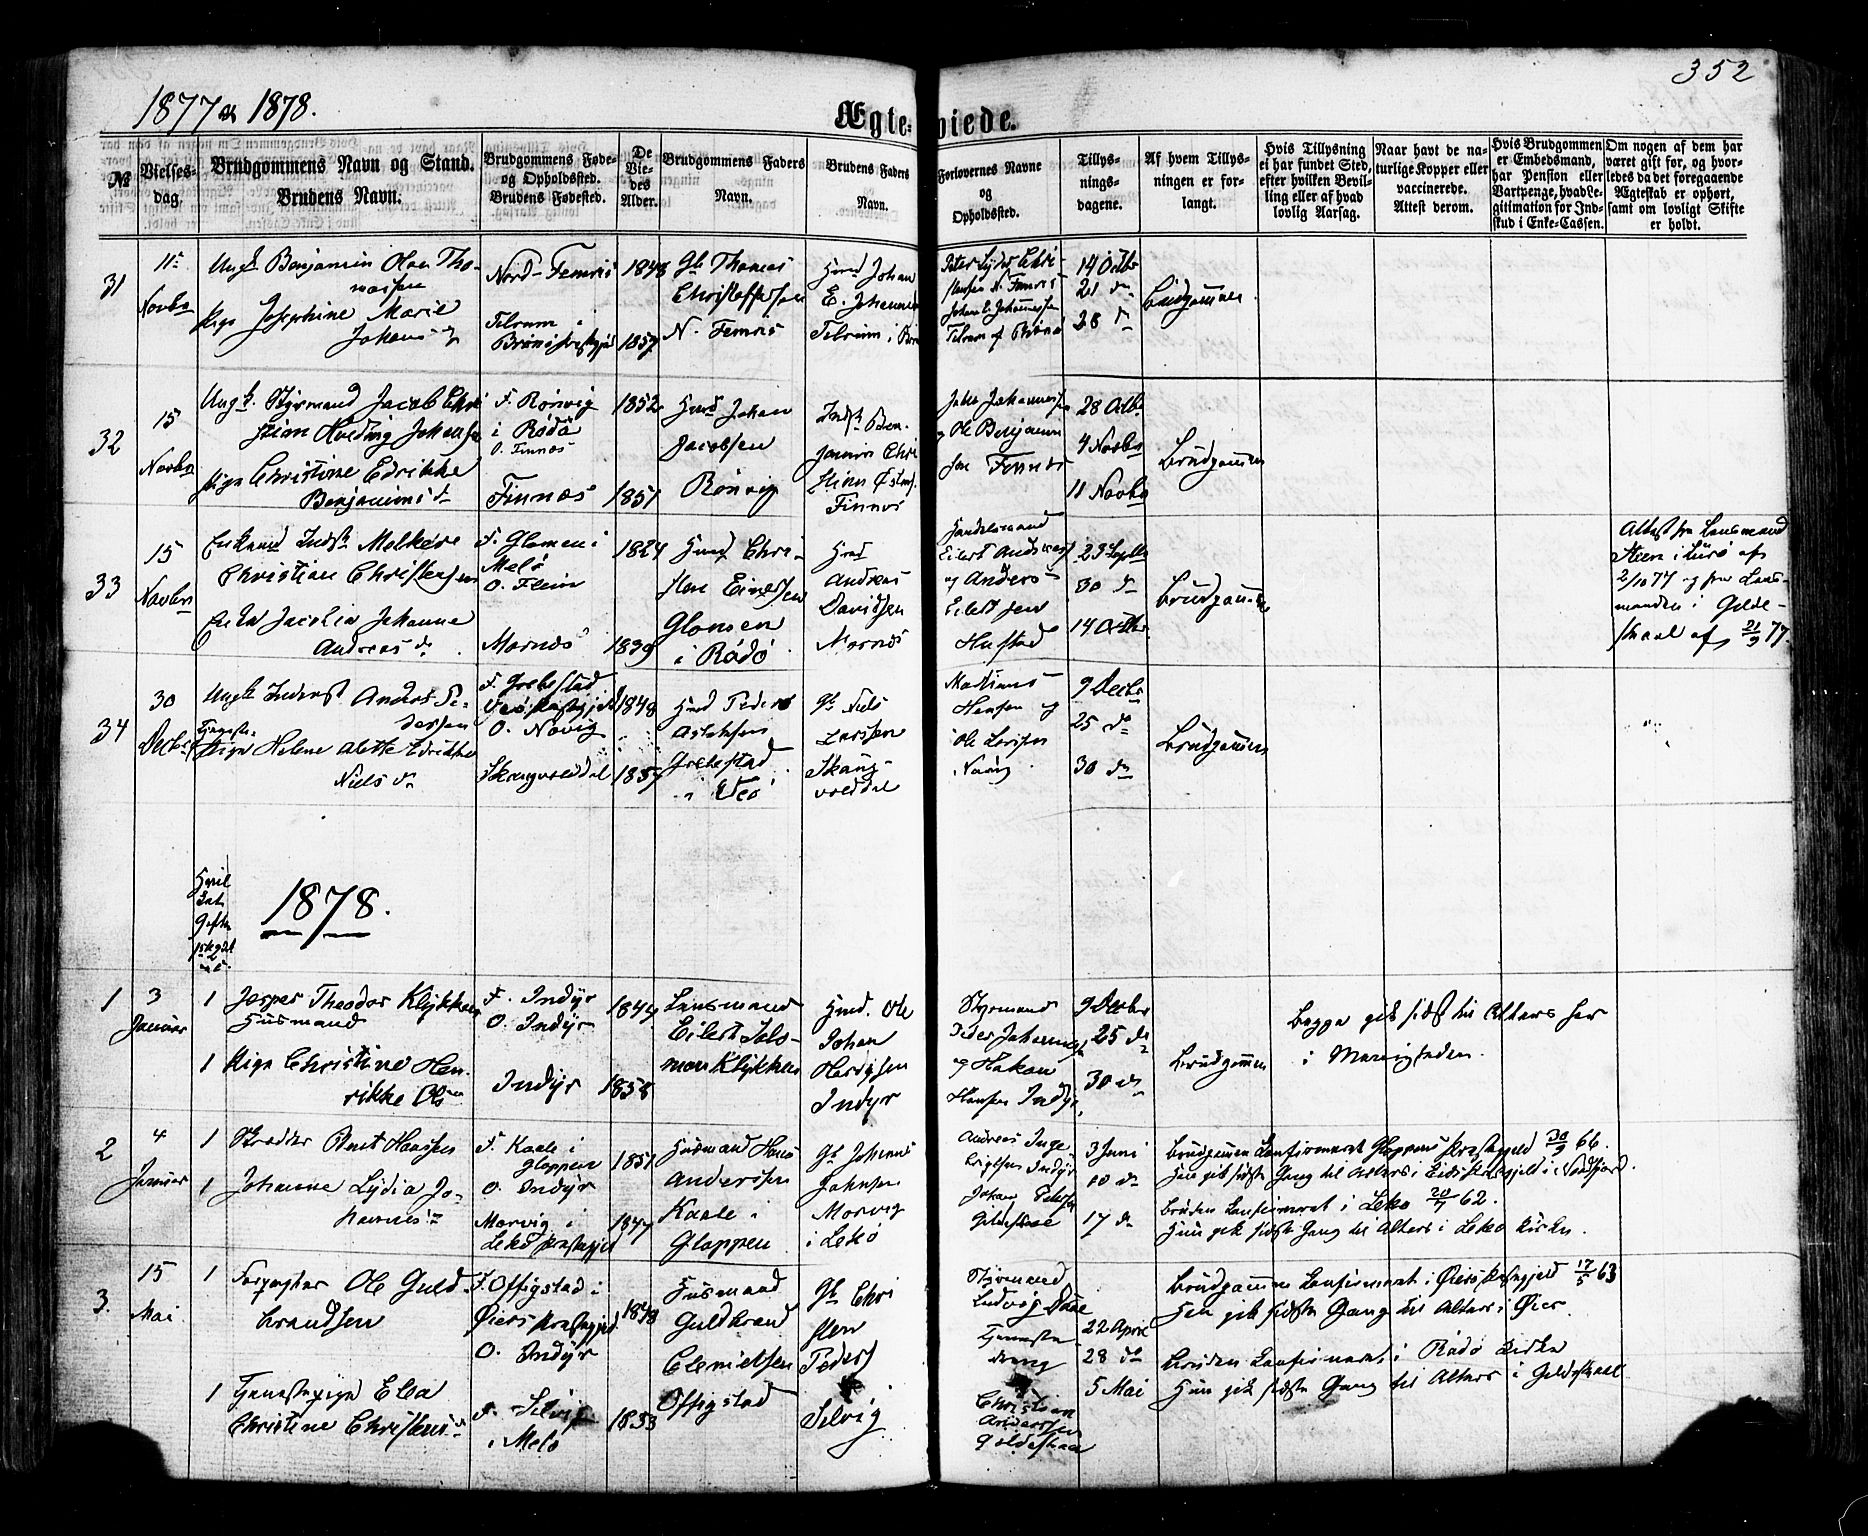 352
1877 & 1878.
Ægteviede.
№
Vielses-
dag.
Brudgommens Navn og Stand.
Brudens Navn.
Brudgommens Føde-
og Opholdssted.
Brudens Fødested.
De
Vie-
des
Alder.
Brudgommens Faders
Navn.
Brudens Faders
Navn.
Forlovernes Navne
og
Opholdssted.
Tillys-
nings-
dagene.
Af hvem Tillys-
ningen er for-
langt.
Hvis Tillysning
ei har fundet Sted,
efter hvilken Bevil-
ling eller af hvad
lovlig Aarsag.
Naar havt de na-
turlige Kopper eller
vaccinerede.
Attest derom.
Hvis Brudgommen
er Embedsmand,
har Pension eller
Vartpenge, hvad Le-
gitimation for Ind-
skud i Enke-Cassen.
Om nogen af dem har
været gift før, og hvor-
ledes da det foregaaende
Ægteskab er ophørt,
samt om lovligt Skifte
er holdt.
31
11
Novbr
Ungk Benjamin Olai Tho-
massen
Pige Josephine Marie
Johans d
Nord-Femris
Tilrum i
Brønø Præstegjeld
1848
1857
Gb Thomas
Christoffersen
N. Femris
Gmd Johan
E. Johannes
Tilrum i Brø
Peter Lyder Chri-
stensen N. Femris
Johan E. Johannessen
Tilrum af Brønø
14 Octbr
21 do
28 do
Brudgommen
32
15
Novbr
Ungk. Styrmand Jacob Chri
stian Holding Johansen
Pige Christine Edrikke
Benjamins d
F. Rønvig
i Rødø
O. Finnæs
Finnæs
1852
1851
Gmd Johan
Jacobsen
Rønvig
Indst Ben-
jamin Chri
stian
Finnæs
John Johannessen
og Ole Benjamin
sen Finnæs
28 Octbr
4 Novbr
11 Novbr
Brudgommen
33
15
Novbr
Enkemd Indst Melkior
Christian Christensen
Enke Jacobia Johanne
Andreas d.
F. Glomen i
Melø
O. Flein
Mornæs
1824
1839
Gmd Chri-
sten Einersen
Glomen
i Rødø
Gmd
Andreas
Davidsen
Mornæs
Handelsmand
Eilert Andreas
og Anders
Eilertsen
Hustad
23 Septbr
30 do
14 Octbr
Brudgommen
Attest fra Lensmand
Steen i Lurø af
2/10 77 og fra Lens-
manden i Gilde-
skaal af 21/9 77.
34
30
Decbr
Ungk Inderst Anders Pe-
dersen
Tjeneste-
Pige Helene Alette Edrikke
Niels d.
F. Grebestad
Veø Præstegjeld
O. Novig
Skangvolddal
1848
1857
Gmd Peder
Aslaksen
Grebestad
i Veø
Gb Niels
Larssen
Skang-
volddal
Mathias
Hansen og
Ole Larssen
Novig
9 Decbr
25 do
30 do
Brudgommen
1878.
1
3
Januar
1
Jesper Theodor Klykken
Husmand
1
Pige Christine Hen-
rikke Ols d
F. Indyr
O. Indyr
Indyr
1844
1858
Lensmand
Eilert Salo-
mon Klykken
Gmd. Ole
Johan
Hartvigsen
Indyr
Styrmand
Peder Johannes
og Hakon
Hansen Indyr
9 Decbr
25 do
30 do
Brudgommen
Begge gik sidst til Alters her
i Menigheden.
2
4
Januar
1
Skrædder Bent Hanssen
1
Johanne Lydia Jo-
hannes d
F. Kaale i
Gloppen
O. Indyr
Morvig i
Lekø Præstegjeld
1851
1847
Husmand Hans
Anderssen
Kaale i
Gloppen
Gb Johannes
Johnsen
Morvig
i Lekø
Andreas Inge
brigtsen Indyr
Johan Peters
Gildeskaal
3 Juni
10 do
17 do
Brudgommen Konfirmeret Gloppens Præstegjeld 30/9 66.
Han gik sidste Gang til Alters i Eids Præstegjeld i Nordfjord.
Bruden Konfirmeret i Lekø 20/7 62.
Hun gik sidste Gang til Alters i Lekø Kirke.
3.
15
Mai
1
Forpagter Ole Guld-
brandsen
1
Tjenestepige Elea
Christine Christens d
F. Offigstad i
Øiers Præstegjeld
O. Indyr
F. Selvig
i Melø
1848
1853
Husmand
Guldbrand
Clemetsen
Offigstad
Gb Chri
sten
Peders
Selvig
Styrmand
Ludvig Daae
Tjeneste-
dreng
Christian
Anderssen
Gildeskaal
22 April
28 do
5 Mai
Brudgommen Konfirmeret i Øiers Præstegjeld 17/5 63
Han gik sidste Gang til Alters i Øier.
Bruden Konfirmeret i Rødø Kirke
Hun gik sidste Gang til Alters i Gildeskaal